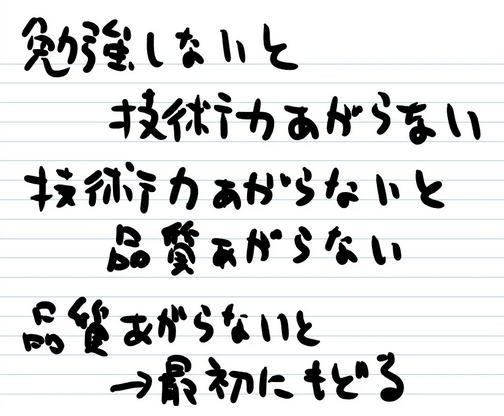 勉強しないと
技術力あがらない
技術力あがらないと
品質あがらない
品質あがらないと
→最初にもどる